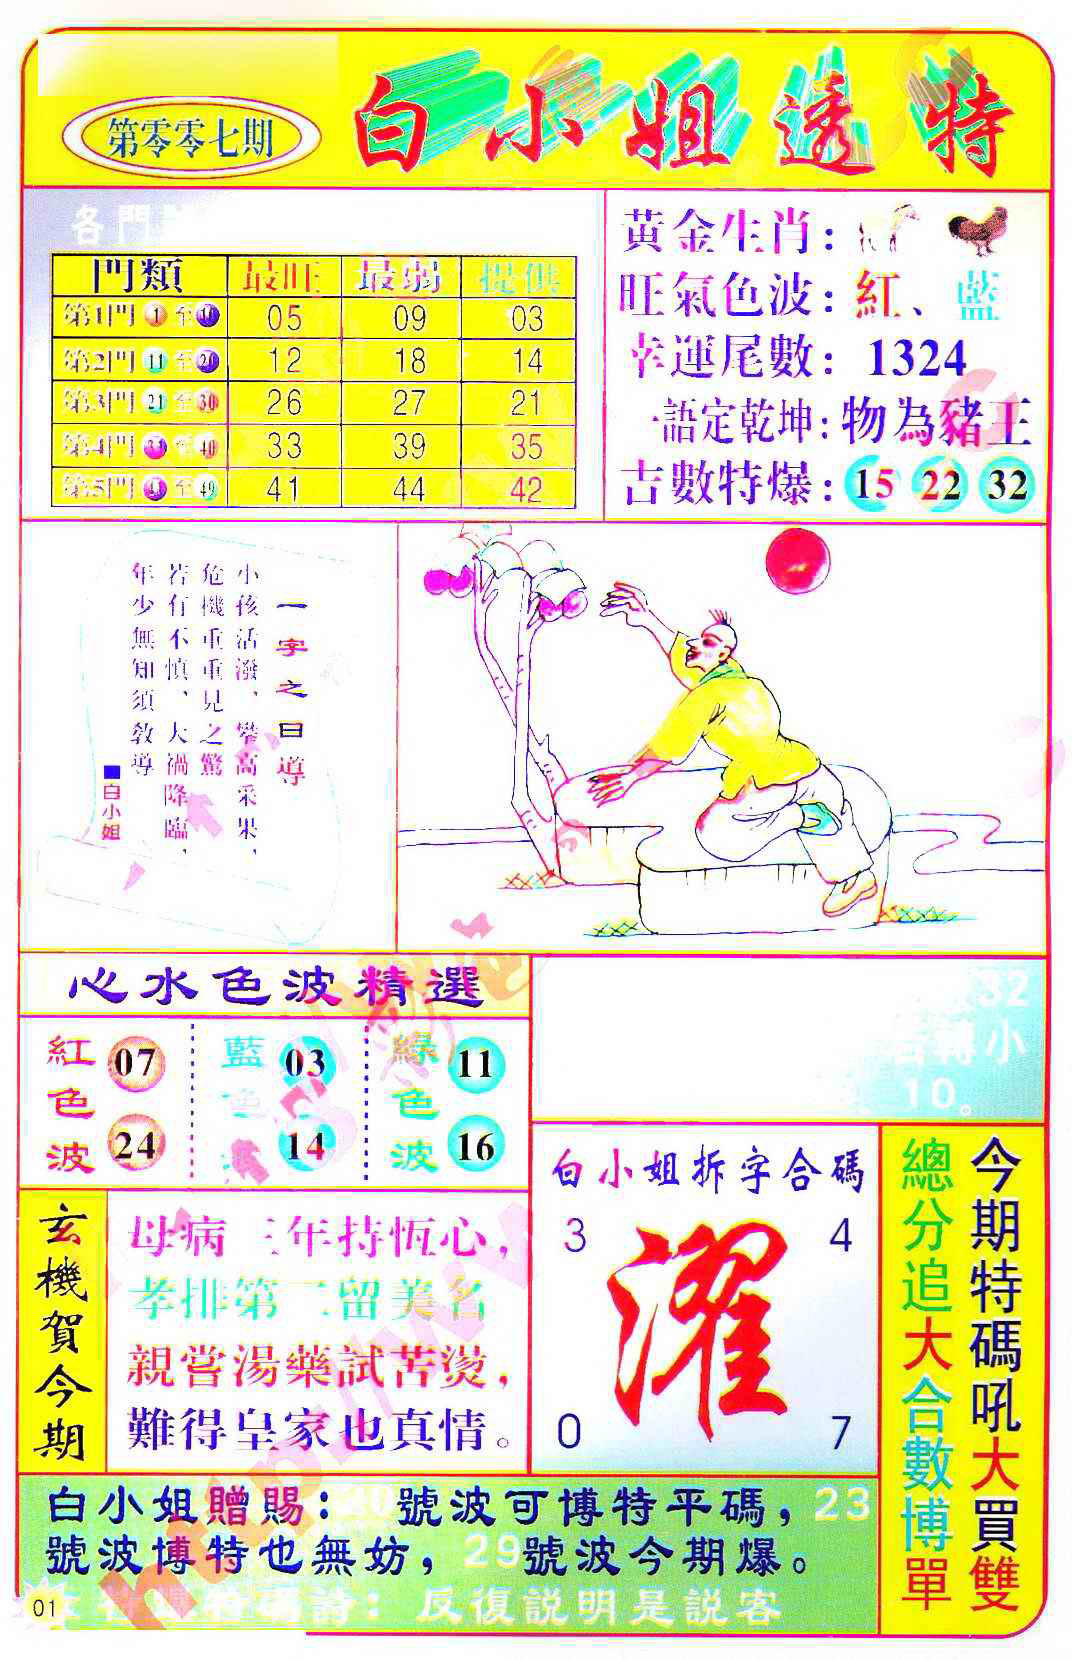 第零零七期
白小姐透特
各門
門類 最旺 最弱 提供
第1門 1 至 10 05 09 03
第2門 11 至 20 12 18 14
第3門 21 至 30 26 27 21
第4門 31 至 40 33 39 35
第5門 41 至 49 41 44 42
黃金生肖：
旺氣色波：紅、藍
幸運尾數：1324
一語定乾坤：物為豬王
古數特爆：15 22 32
一字之曰導
小孩活潑、攀高采果、
危機重重見之驚
若有不慎、大禍降臨、
年少無知須教導
■白小姐
心水色波精選
紅色波 07 24
藍色波 03 14
綠色波 11 16
32
轉小
10。
玄機賀今期
母病三年持恆心，
孝排第二留美名
親嘗湯藥試苦燙，
難得皇家也真情。
白小姐拆字合碼
3 4
濯
0 7
今期特碼吼大買雙
總分追大合數博單
白小姐贈賜：20號波可博特平碼，23
號波博特也無妨，29號波今期爆。
詩：反復説明是説客
01